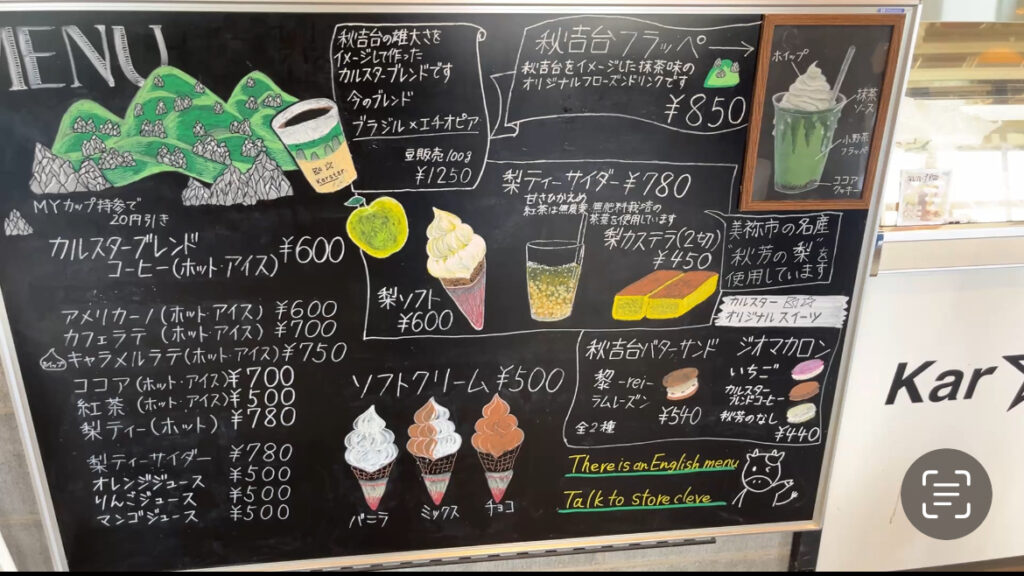 MENU
秋吉台の雄大さを
イメージして作った
カルスターブレンドです
今のブレンド
ブラジル×エチオピア
豆販売100g
¥1250
Karstar
MYカップ持参で
20円引き
カルスターブレンド
コーヒー(ホット・アイス) ¥600
アメリカーノ(ホット・アイス) ¥600
カフェラテ(ホット・アイス) ¥700
キャラメルラテ(ホット・アイス) ¥750
ココア(ホット・アイス) ¥700
紅茶(ホット・アイス) ¥500
梨ティー(ホット) ¥780
梨ティーサイダー ¥780
オレンジジュース ¥500
りんごジュース ¥500
マンゴジュース ¥500
秋吉台フラッペ →
秋吉台をイメージした抹茶味の
オリジナルフローズンドリンクです
¥850
ホイップ
抹茶
ソース
小野茶
フラッペ
ココア
クッキー
梨ティーサイダー ¥780
甘さひかえめ
紅茶は無農薬、無肥料栽培の
茶葉を使用しています
梨カステラ(2切)
¥450
梨ソフト
¥600
美祢市の名産
"秋芳の梨"を
使用しています
カルスター
オリジナルスイーツ
ソフトクリーム ¥500
バニラ
ミックス
チョコ
秋吉台バターサンド
黎-rei-
ラムレーズン
¥540
全2種
ジオマカロン
いちご
カルスター
秋芳のなし
¥440
There is an English menu
Talk to store cleve
Kar